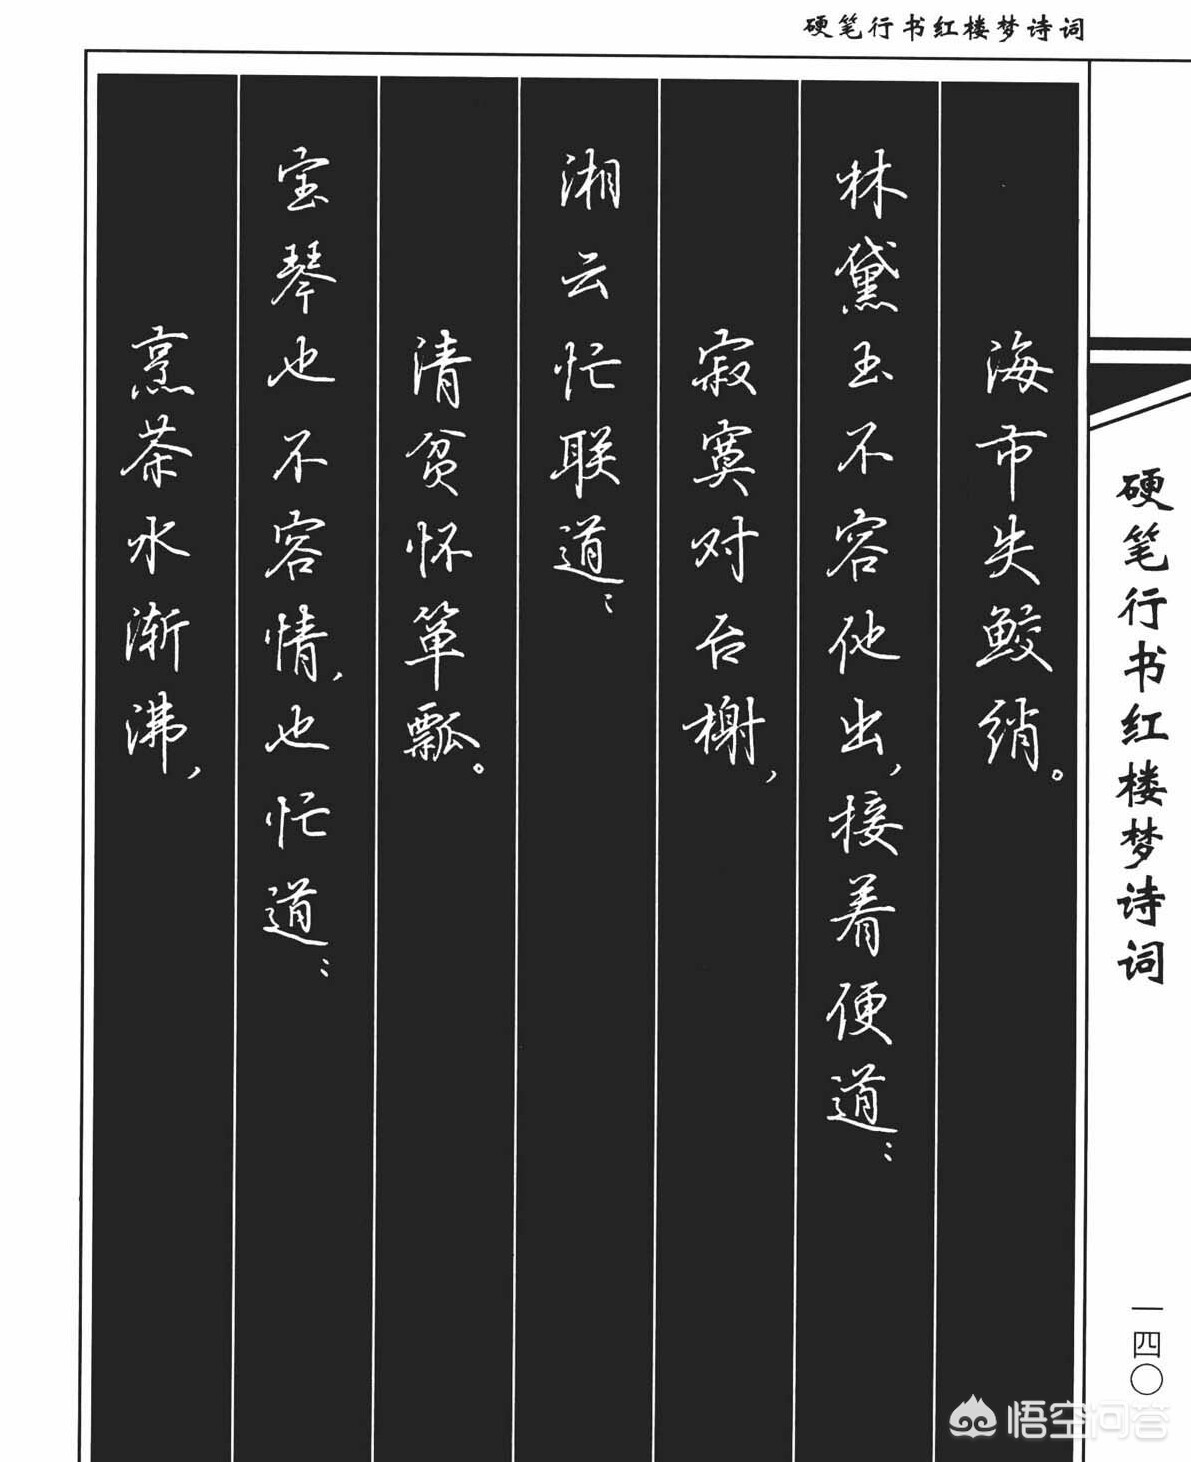 硬笔行书红楼梦诗词
海市失鲛绡。
林黛玉不容他出，接着便道：
寂寞对台榭，
湘云忙联道：
清贫怀箪瓢。
宝琴也不容情，也忙道：
烹茶水渐沸，
硬笔行书红楼梦诗词
一四〇
悟空问答